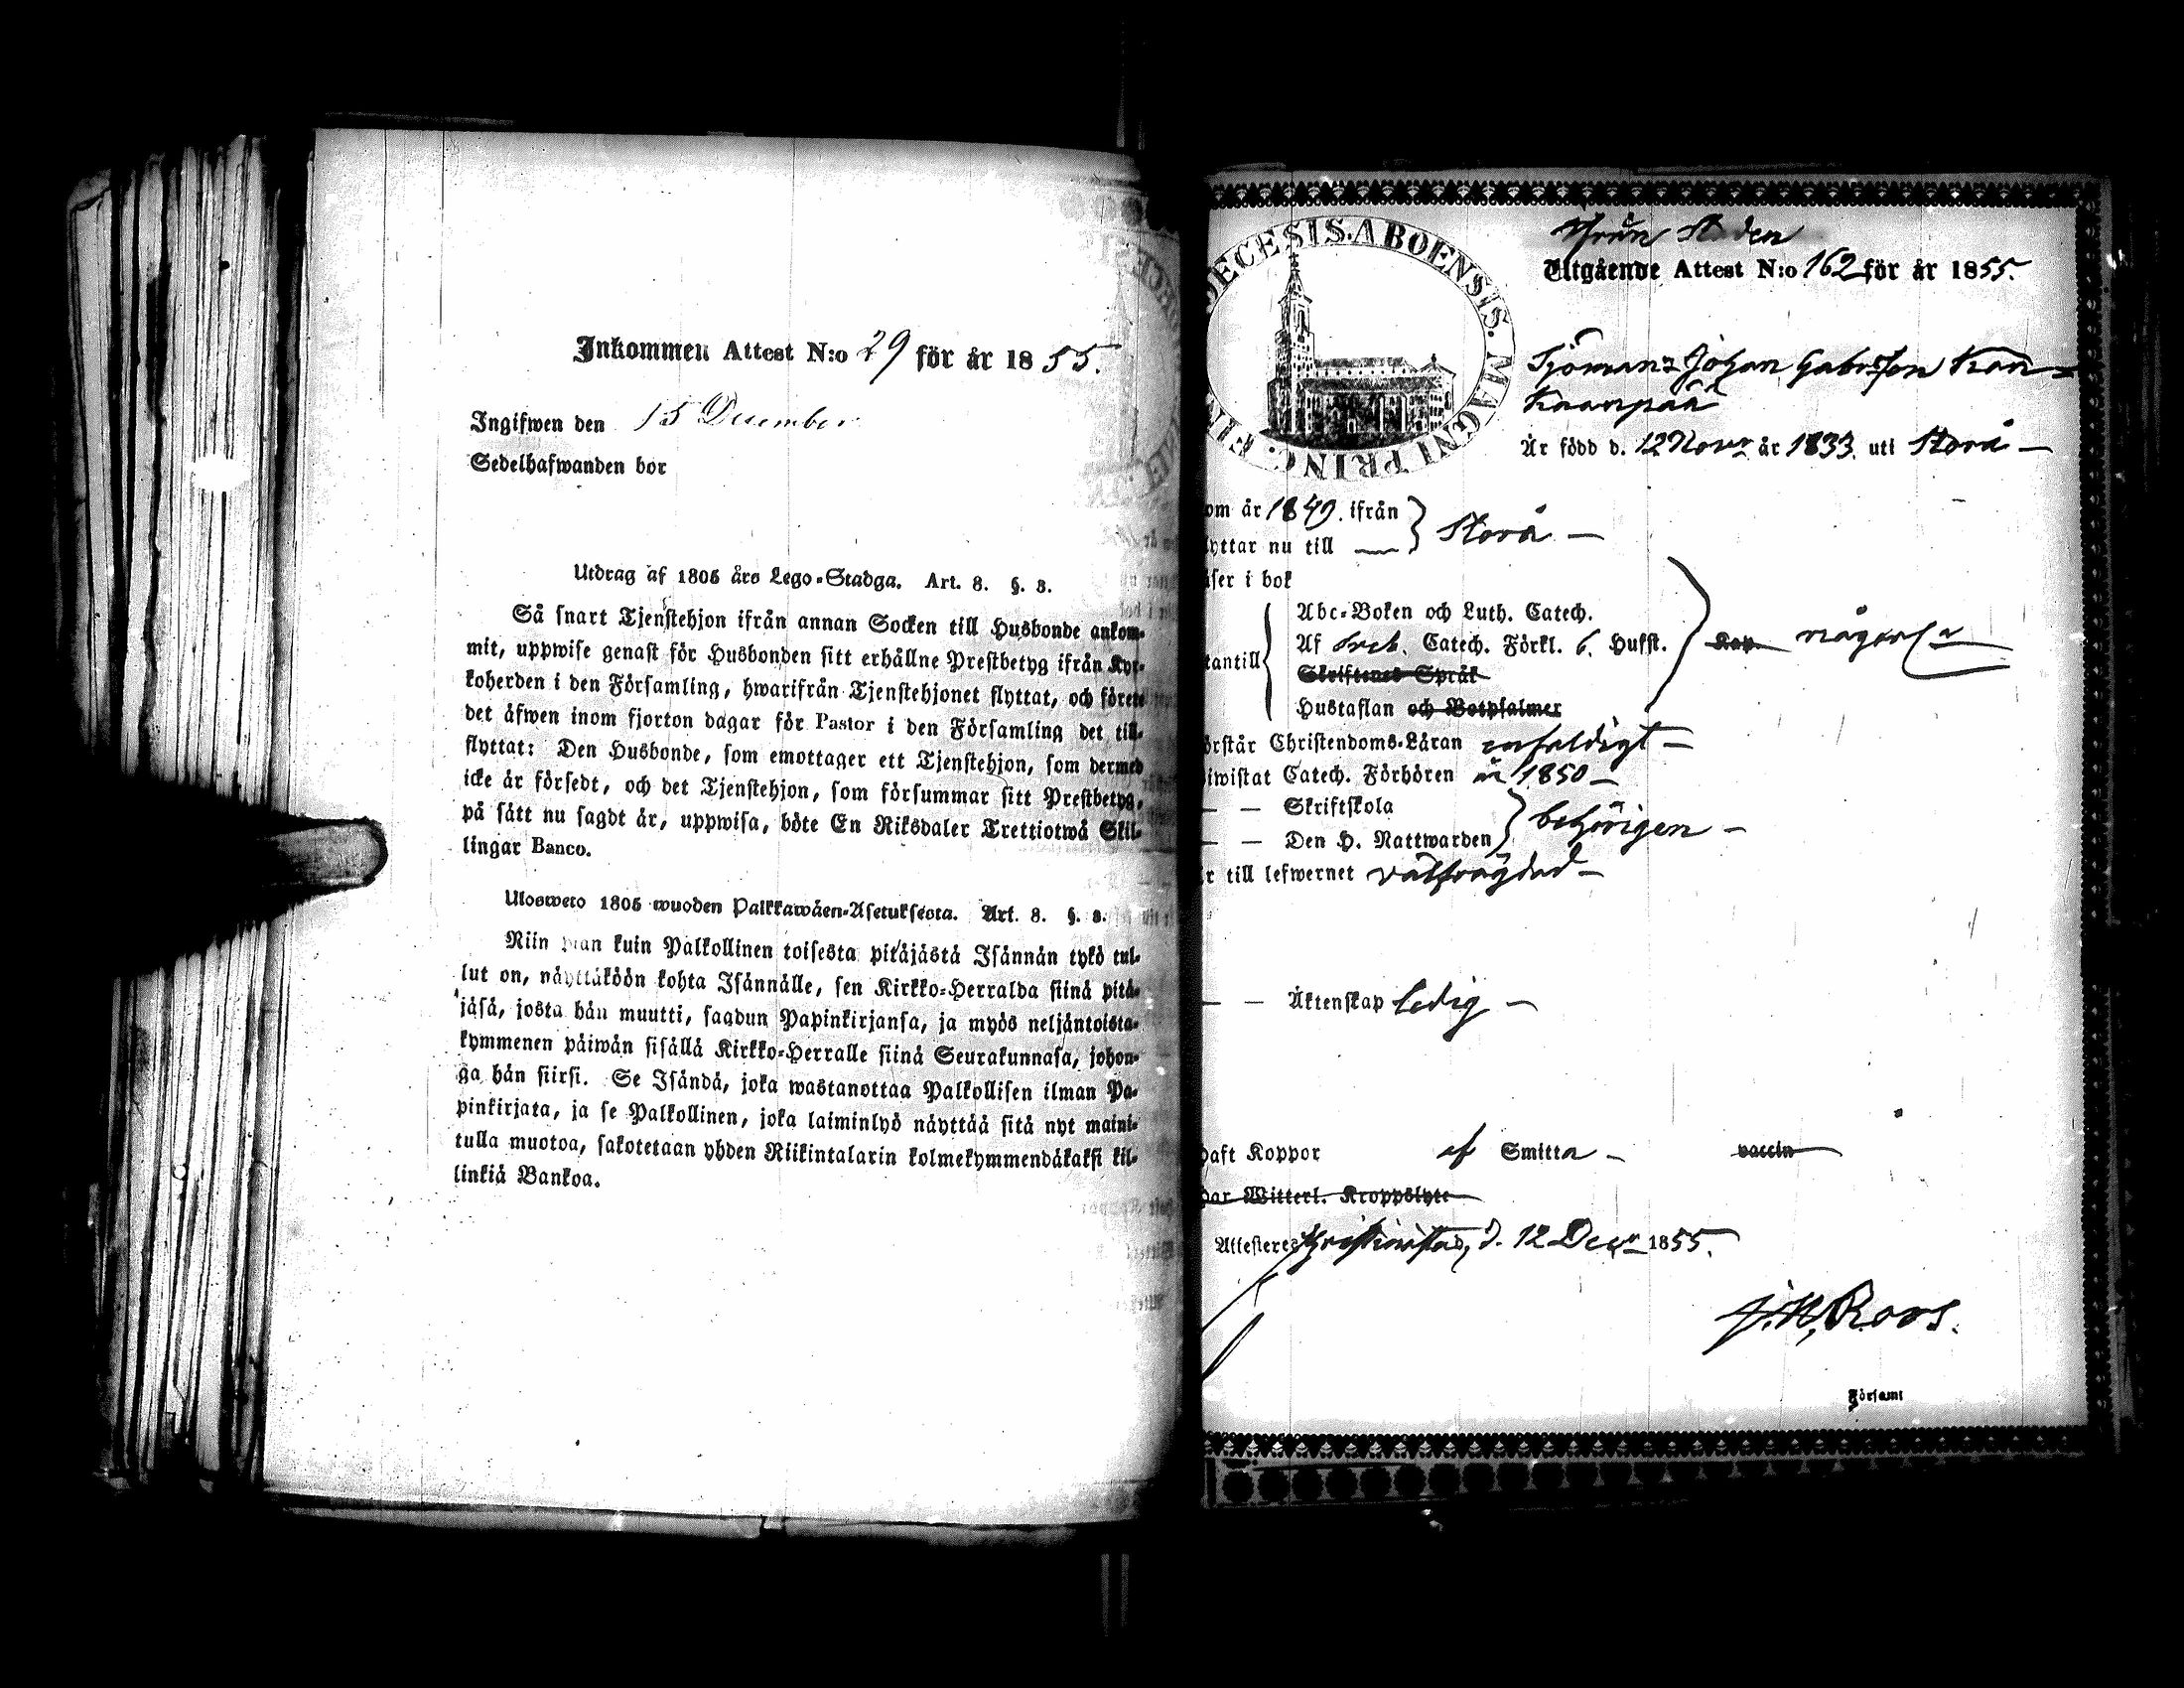 Inkommen Attest N:o 29 för år 1855.
Ingifwen den 15 December
Sedelhafwanden bor
Utdrag af 1805 års Lego-Stadga. Art. 8. §. 3.
Så snart Tjenstehjon ifrån annan Socken till Husbonde ankom-
mit, uppwise genast för Husbonden sitt erhållne Prestbetyg ifrån Kyr-
koherden i den Församling, hwarifrån Tjenstehjonet flyttat, och förete
det äfwen inom fjorton dagar för Pastor i den Församling det till-
flyttat: Den Husbonde, som emottager ett Tjenstehjon, som dermed
icke är försedt, och det Tjenstehjon, som försummar sitt Prestbetyg,
på sätt nu sagdt är, uppwisa, böte En Riksdaler Trettiotwå Skil-
lingar Banco.
Ulosweto 1805 wuoden Palkkawäen-Asetuksesta. Art. 8. §. 3.
Niin pian kuin Palkollinen toisesta pitäjästä Isännän tykö tul-
lut on, näyttäköön kohta Isännälle, sen Kirkko-Herralda siinä pitä-
jäsä, josta hän muutti, saadun Papinkirjansa, ja myös neljäntoista-
kymmenen päiwän sisällä Kirkko-Herralle siinä Seurakunnasa, johon-
ga hän siirsi. Se Isändä, joka wastanottaa Palkollisen ilman Pa-
pinkirjata, ja se Palkollinen, joka laiminlyö näyttää sitä nyt maini-
tulla muotoa, sakotetaan yhden Riikintalarin kolmekymmendäkaksi kil-
linkiä Bankoa.
DECESIS. ABOENSIS. MAGNI PRINC. FIN
från Staden
Utgående Attest N:o 162 för år 1855.
Sjöman Johan Gabrielson Kan-
kaanpää
Är född d. 12 Novr år 1833. uti Storå
om år 1849. ifrån
yttar nu till — } Storå —
äser i bok
Abc-Boken och Luth. Catech.
Af Sveb. Catech. Förkl. 6. Hufst. någorl.
tantill
Skriftenes Språk
Hustaflan och Botpsalmer
örstår Christendoms-Läran enfaldigt —
iwistat Catech. Förhören år 1850 —
— — Skriftskola
— — Den H. Nattwarden } behörigen —
r till lefwernet välfrägdad —
— — Äktenskap ledig —
haft Koppor af Smitta — vaccin
har Witterl. Kroppslyte
Attesteres Christinestad, d. 12 Decr 1855.
J. N. Roos.
Församl